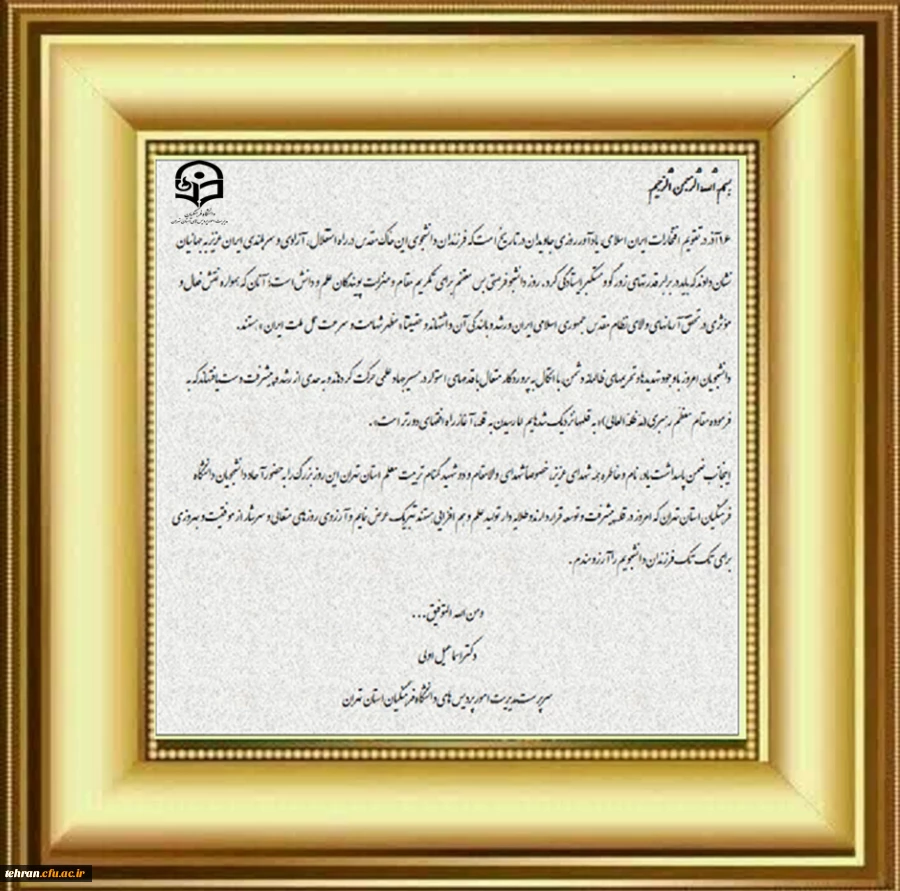 بسم الله الرحمن الرحیم
دانشگاه فرهنگیان
۱۶ آذر در تقویم افتخارات ایران اسلامی، یادآور روزی جاویدان در تاریخ است که فرزندان دانشجوی این خاک مقدس در راه استقلال، آزادی و سربلندی ایران عزیز به جهانیان
نشان دادند که باید در برابر قدرتهای زورگو و مستکبر ایستادگی کرد. روز دانشجو فرصتی بس مغتنم برای تکریم مقام و منزلت پویندگان علم و دانش است؛ آنان که همواره نقش فعال و
مؤثری در تحقق آرمانهای والای نظام مقدس جمهوری اسلامی ایران و رشد و بالندگی آن داشته‌اند و حقیقتاً «مظهر شهامت و سرعت عمل ملت ایران» هستند.
دانشجویان امروز با وجود تهدیدها و تحریمهای ظالمانه دشمن، با اتکال به پروردگار متعال با قدمهای استوار در مسیر جهاد علمی حرکت کرده‌اند و به حدی از رشد و پیشرفت دست یافته‌اند که به
فرموده مقام معظم رهبری (مدظله العالی) «به قله‌ها نزدیک شده‌ایم اما رسیدن به قله، آغاز راه افقهای دورتر است».
اینجانب ضمن پاسداشت یاد، نام و خاطره همه شهدای عزیز، خصوصاً شهدای والامقام و دو شهید گمنام تربیت معلم استان تهران این روز بزرگ را به حضور آحاد دانشجویان دانشگاه
فرهنگیان استان تهران که امروز در قله پیشرفت و توسعه قرار دارند و طلایه دار تولید علم و هم افزایی هستند تبریک عرض نمایم و آرزوی روزهای متعالی و سرشار از موفقیت و بهروزی
برای تک تک فرزندان دانشجویم را آرزومندم.
ومن الله التوفیق...
دکتر اسماعیل اولی
سرپرست مدیریت امور پردیس های دانشگاه فرهنگیان استان تهران
tehran.cfu.ac.ir